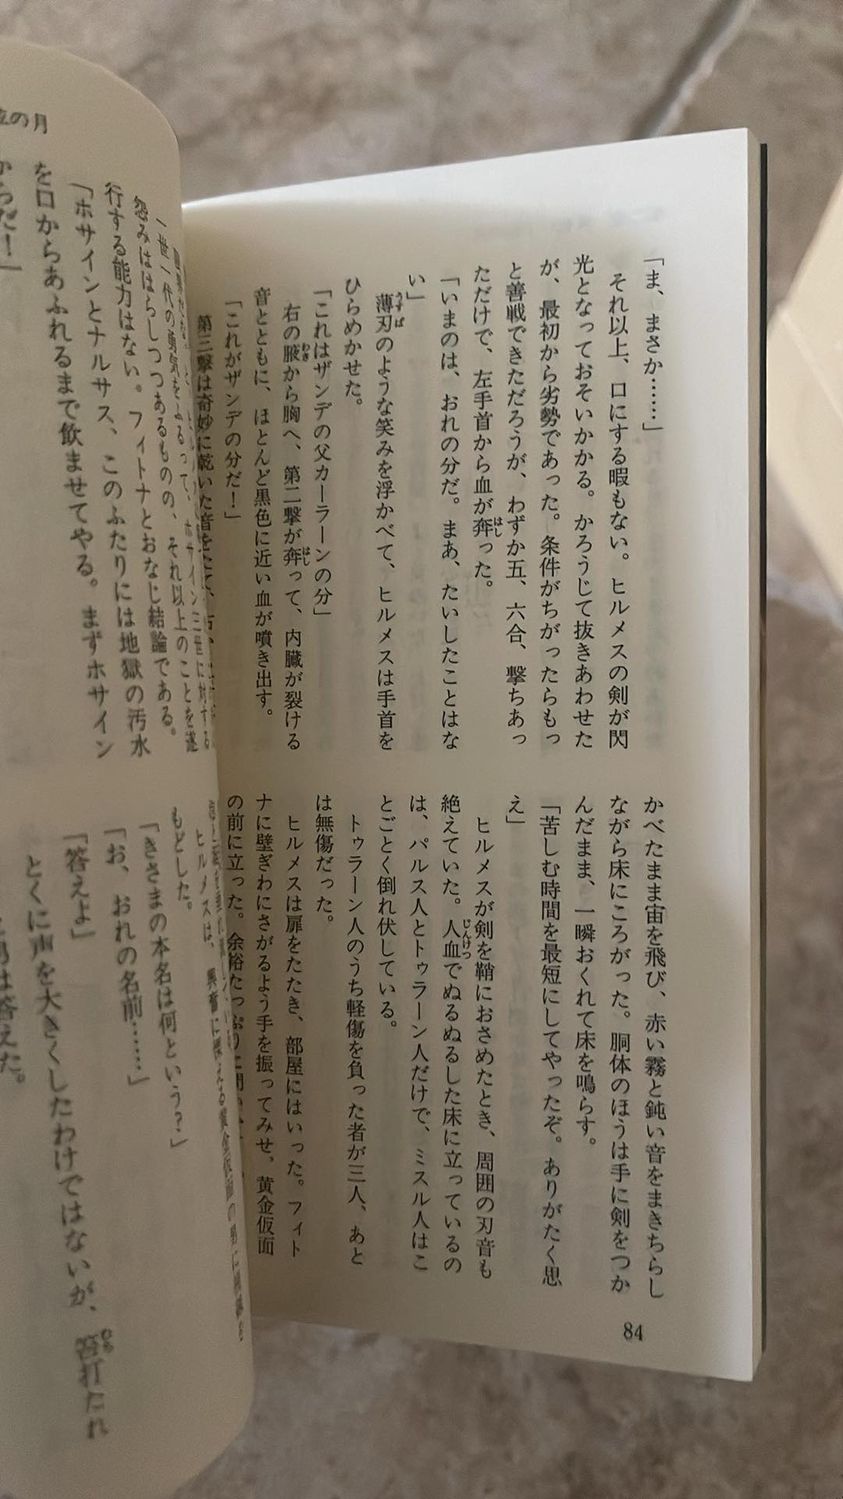 「ま、まさか……」
それ以上、口にする暇もない。ヒルメスの剣が閃
光となっておそいかかる。かろうじて抜きあわせた
が、最初から劣勢であった。条件がちがったらもっ
と善戦できただろうが、わずか五、六合、撃ちあっ
ただけで、左手首から血が奔った。
「いまのは、おれの分だ。まあ、たいしたことはな
い」
薄刃のような笑みを浮かべて、ヒルメスは手首を
ひらめかせた。
「これはザンデの父カーラーンの分」
右の腋から胸へ、第二撃が奔って、内臓が裂ける
音とともに、ほとんど黒色に近い血が噴き出す。
「これがザンデの分だ！」
第三撃は奇妙に乾いた音をたて、
かべたまま宙を飛び、赤い霧と鈍い音をまきちらし
ながら床にころがった。胴体のほうは手に剣をつか
んだまま、一瞬おくれて床を鳴らす。
「苦しむ時間を最短にしてやったぞ。ありがたく思
え」
ヒルメスが剣を鞘におさめたとき、周囲の刃音も
絶えていた。人血でぬるぬるした床に立っているの
は、パルス人とトゥラーン人だけで、ミスル人はこ
とごとく倒れ伏している。
トゥラーン人のうち軽傷を負った者が三人、あと
は無傷だった。
ヒルメスは扉をたたき、部屋にはいった。フィト
ナに壁ぎわにさがるよう手を振ってみせ、黄金仮面
の前に立った。余裕たっぷりに
84
の月
一世一代の勇気をふるって、ホサイン三世に対する
怨みははらしつつあるものの、それ以上のことを遂
行する能力はない。フィトナとおなじ結論である。
「ホサインとナルサス、このふたりには地獄の汚水
を口からあふれるまで飲ませてやる。まずホサイン
からだ！」
ヒルメスは、
もどした。
「きさまの本名は何という？」
「お、おれの名前……」
「答えよ」
とくに声を大きくしたわけではないが、笞打たれ
男は答えた。